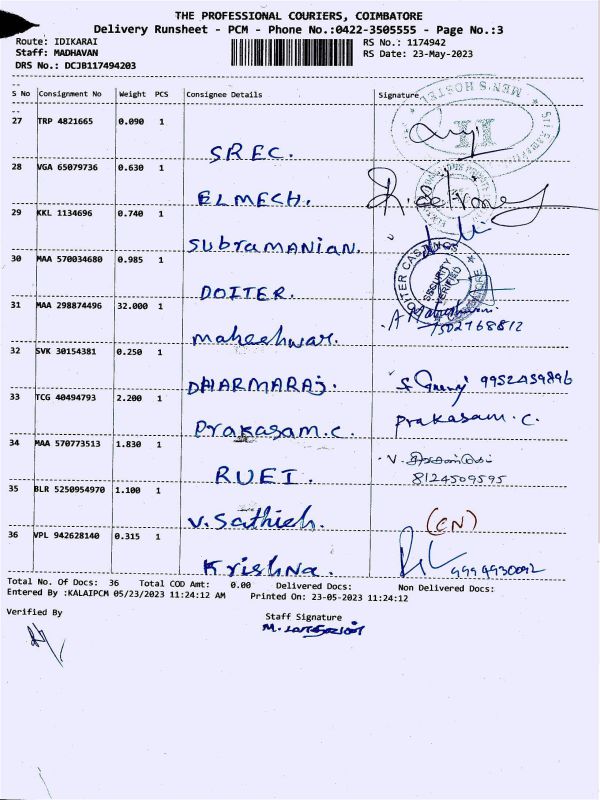 THE PROFESSIONAL COURIERS, COIMBATORE
Delivery Runsheet - PCM - Phone No.:0422-3505555 - Page No.:3
Route: IDIKARAI RS No.: 1174942
Staff: MADHAVAN RS Date: 23-May-2023
DRS No.: DCJB117494203
S No Consignment No Weight PCS Consignee Details Signature
MEN'S HOSTEL
II
27 TRP 4821665 0.090 1
SREC.
28 VGA 65079736 0.630 1
ELMECH.
29 KKL 1134696 0.740 1
Subramanian.
30 MAA 570034680 0.985 1
DOITER.
DOITER CASTINGS
SECURITY
VERIFIED
COIMBATORE
31 MAA 298874496 32.000 1
maheshwar. 7502768812
32 SVK 30154381 0.250 1
DHARMARAJ. 9952459896
33 TCG 40494793 2.200 1
Prakasam.c. Prakasam.c.
34 MAA 570773513 1.830 1
RUEI. 8124509595
35 BLR 5250954970 1.100 1
V.Sathish. (CN)
36 VPL 942628140 0.315 1
Krishna.
Total No. Of Docs: 36 Total COD Amt: 0.00 Delivered Docs: Non Delivered Docs:
Entered By :KALAIPCM 05/23/2023 11:24:12 AM Printed On: 23-05-2023 11:24:12
Verified By Staff Signature